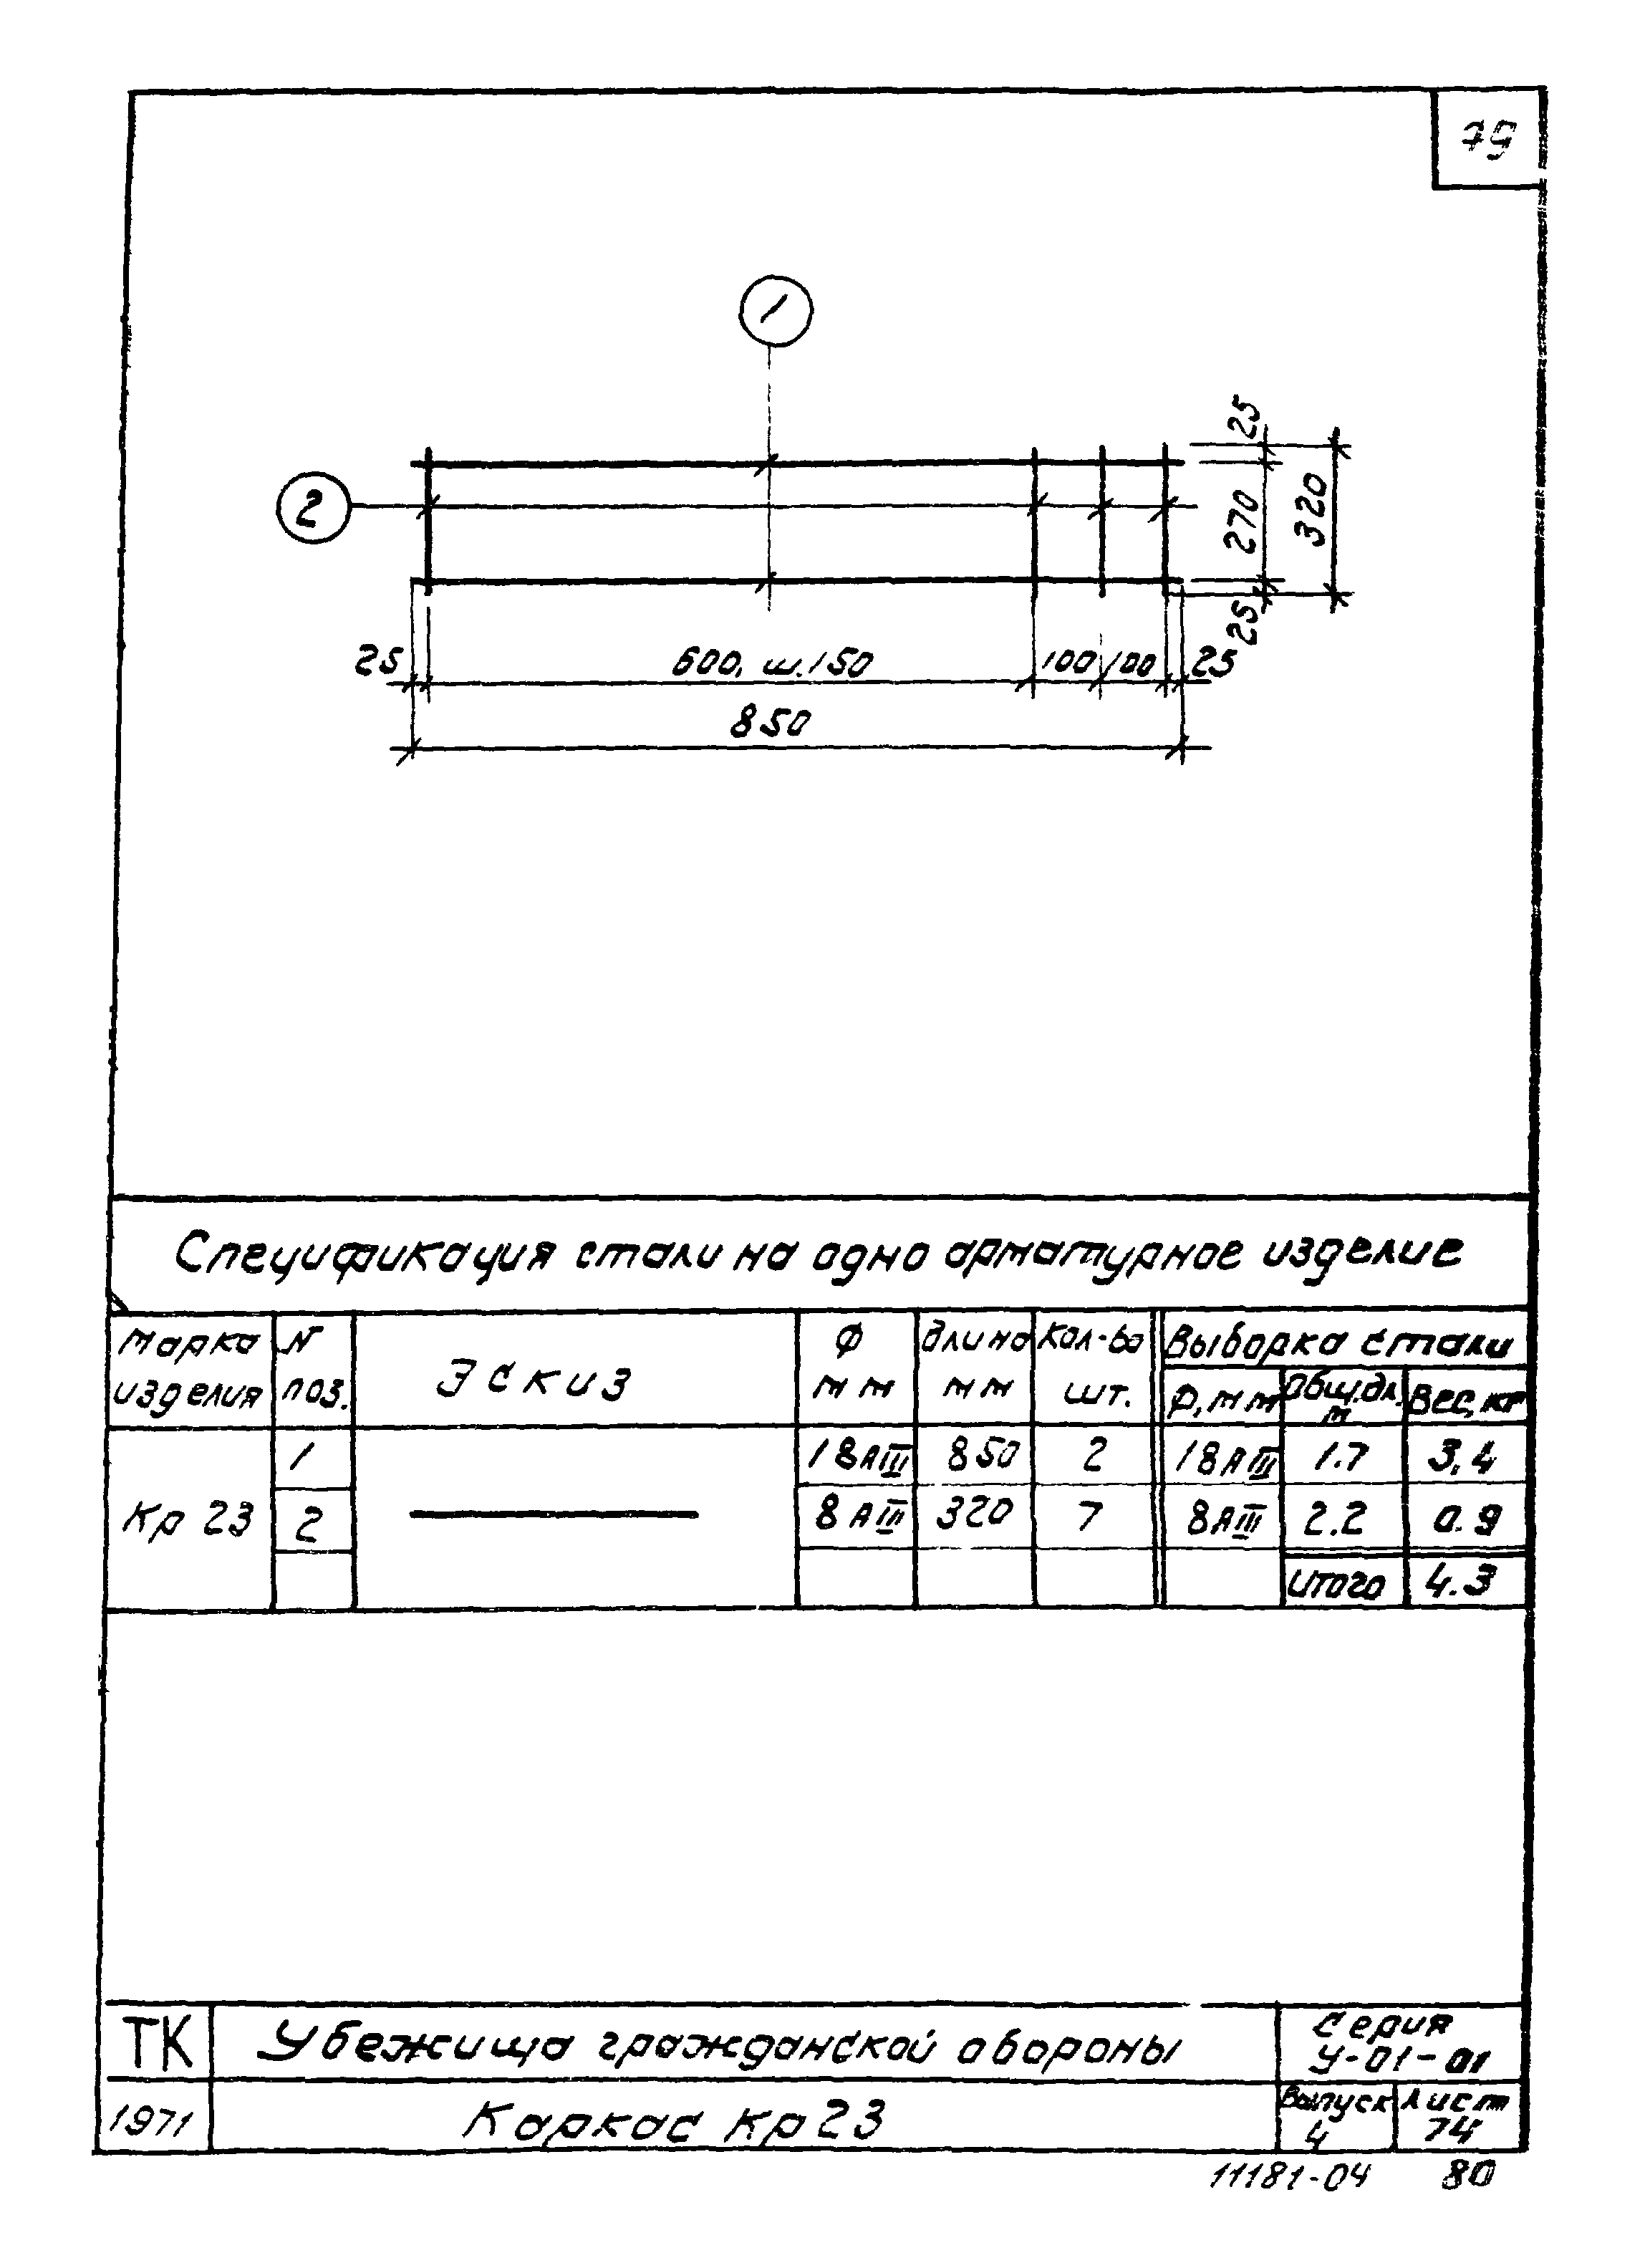 79
1
2
25
270
320
25
25 600, ш.150 100 100 25
850
Спецификация стали на одно арматурное изделие
Марка изделия
N поз.
Эскиз
Ф мм
Длина мм
Кол-во шт.
Выборка стали
Ф, мм Общ. дл. м Вес, кг
Кр 23
1 18АIII 850 2 18АIII 1.7 3,4
2 8АIII 320 7 8АIII 2.2 0.9
Итого 4.3
ТК Убежища гражданской обороны Серия У-01-01
1971 Каркас Кр 23 Выпуск 4 Лист 74
11181-04 80